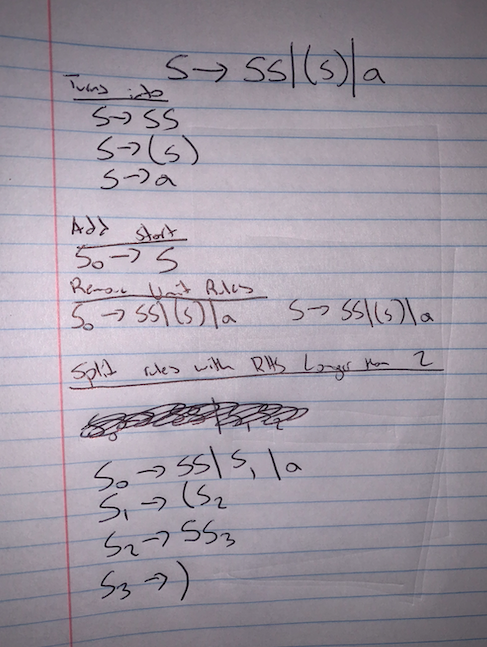 S → SS|(S)|a
Turns into
S → SS
S → (S)
S → a
Add start
S₀ → S
Remove Unit Rules
S₀ → SS|(S)|a S → SS|(S)|a
Split rules with RHS Longer than 2
S₀ → SS|S₁|a
S₁ → (S₂
S₂ → SS₃
S₃ → )